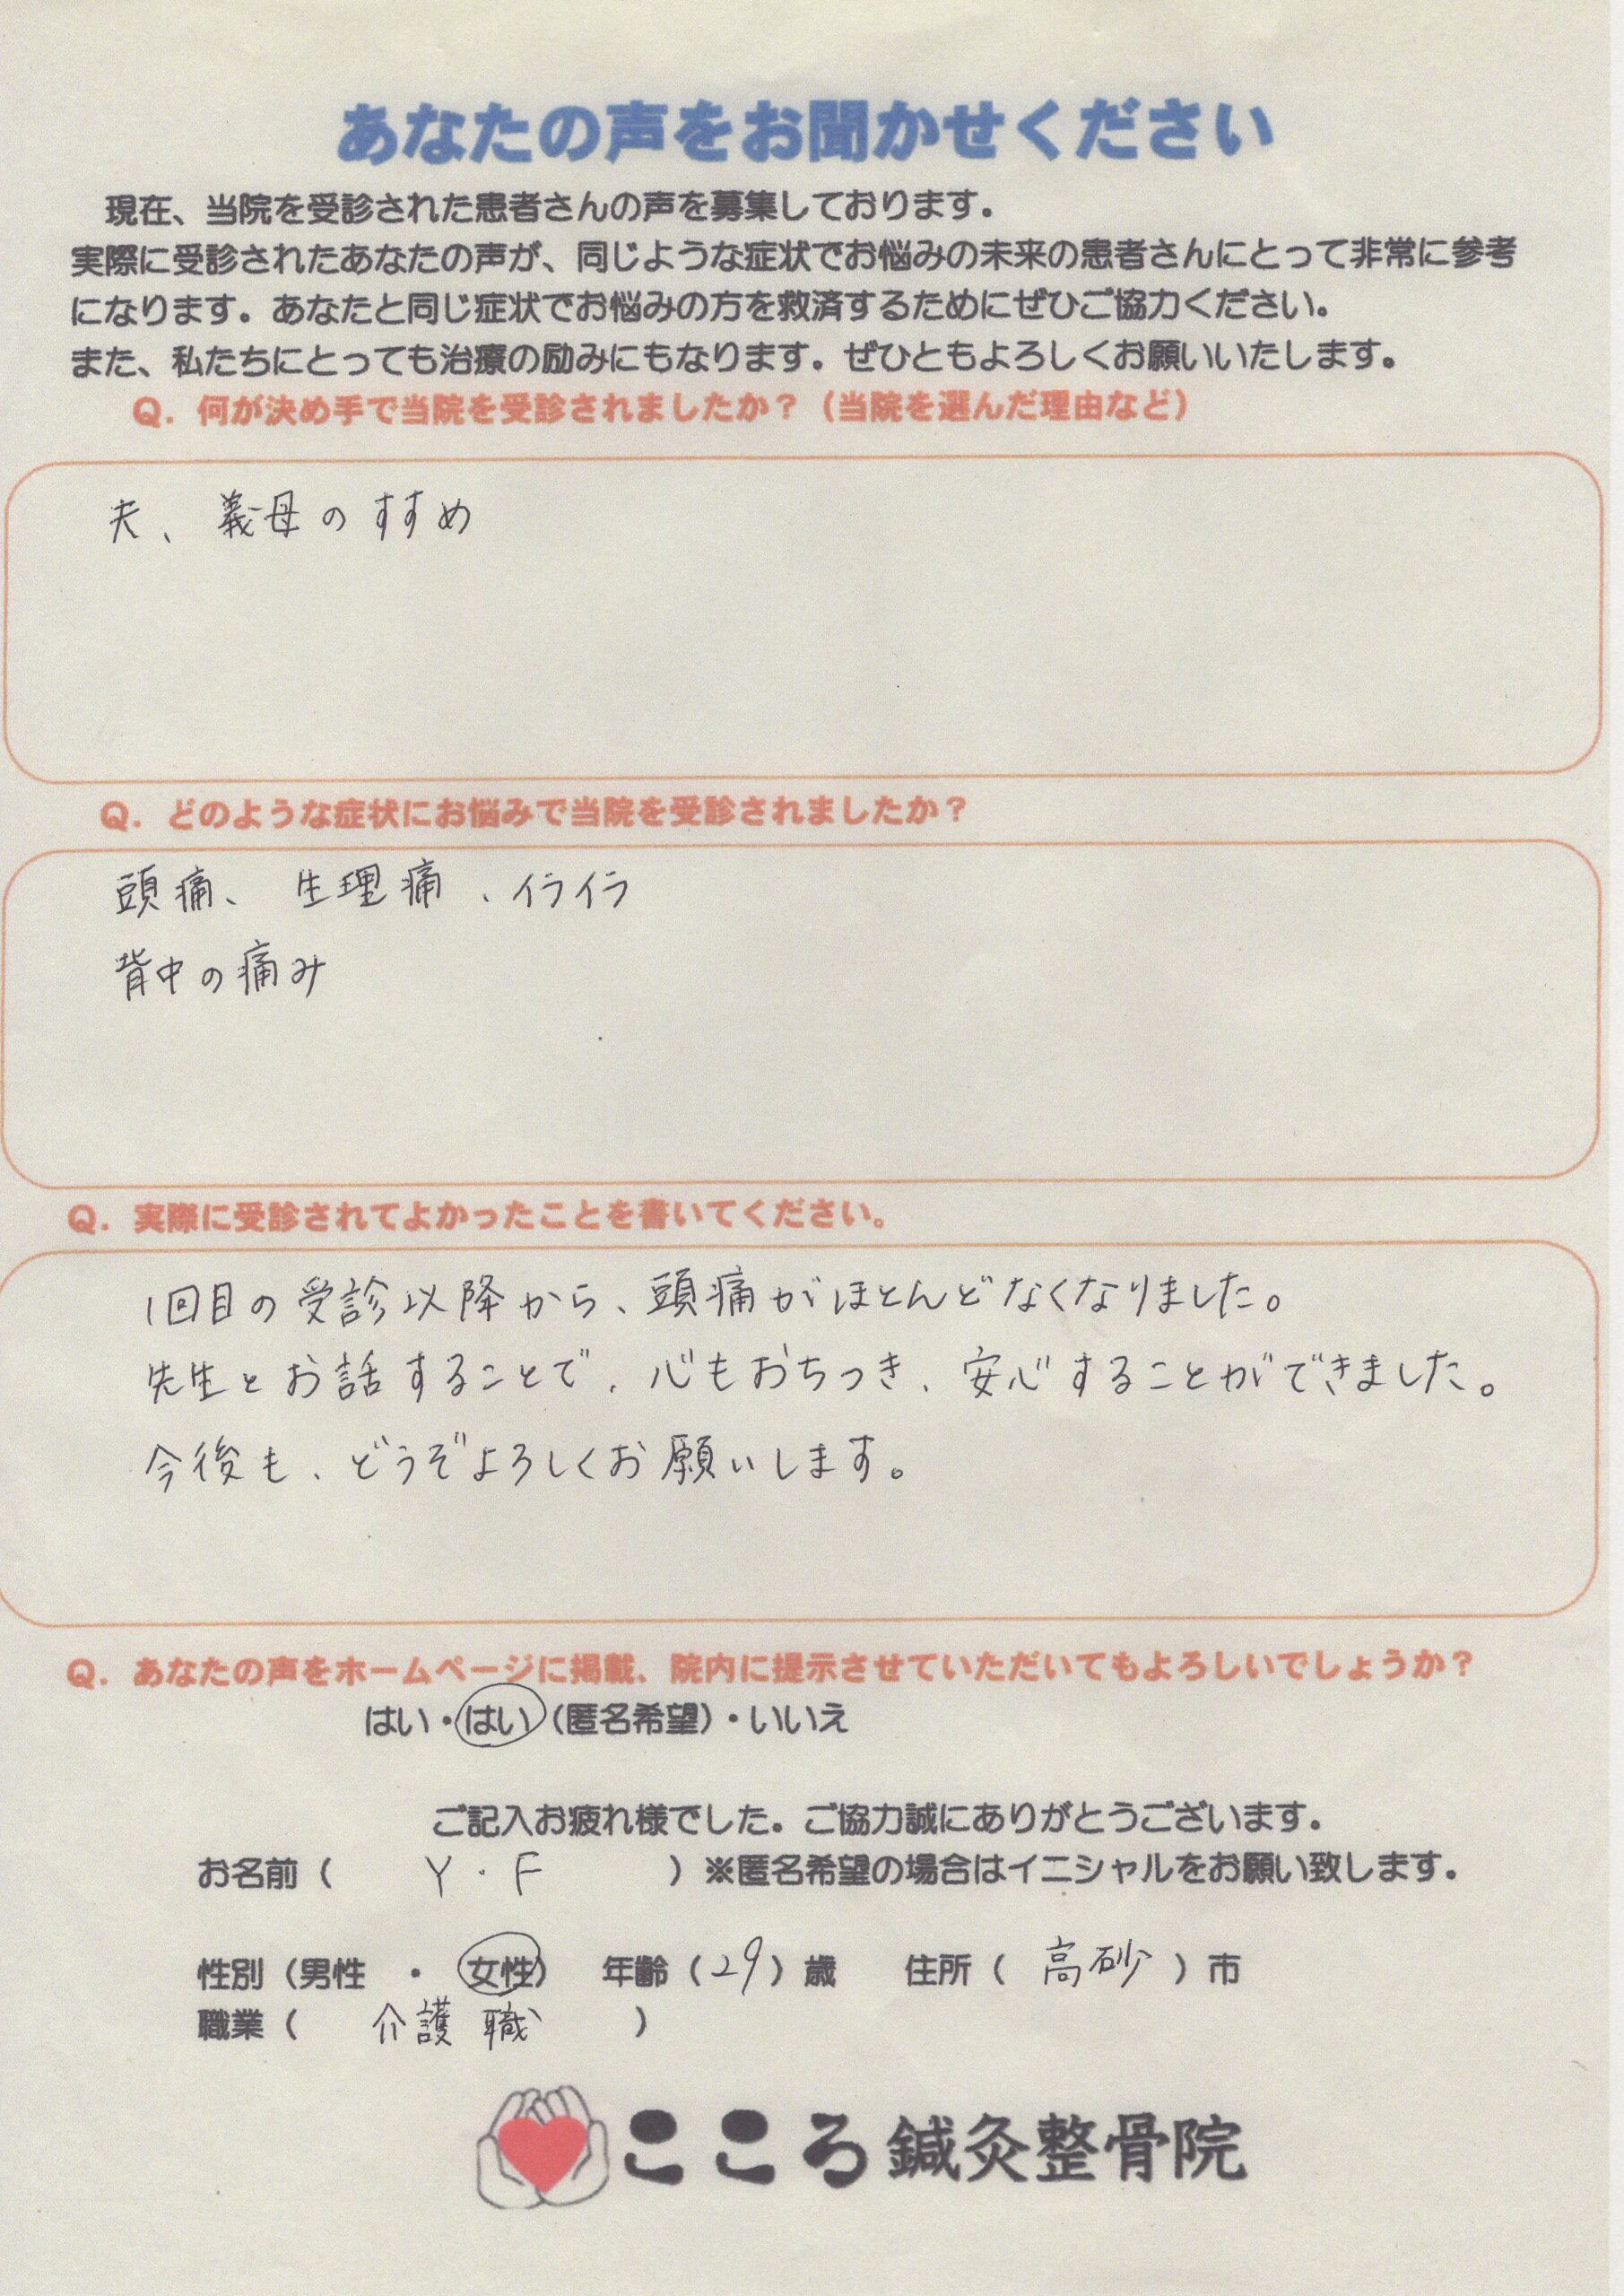 あなたの声をお聞かせください
現在、当院を受診された患者さんの声を募集しております。
実際に受診されたあなたの声が、同じような症状でお悩みの未来の患者さんにとって非常に参考
になります。あなたと同じ症状でお悩みの方を救済するためにぜひご協力ください。
また、私たちにとっても治療の励みにもなります。ぜひともよろしくお願いいたします。
Q. 何が決め手で当院を受診されましたか？（当院を選んだ理由など）
夫、義母のすすめ
Q. どのような症状にお悩みで当院を受診されましたか？
頭痛、生理痛、イライラ
背中の痛み
Q. 実際に受診されてよかったことを書いてください。
1回目の受診以降から、頭痛がほとんどなくなりました。
先生とお話することで、心もおちつき、安心することができました。
今後も、どうぞよろしくお願いします。
Q. あなたの声をホームページに掲載、院内に提示させていただいてもよろしいでしょうか？
はい・はい（匿名希望）・いいえ
ご記入お疲れ様でした。ご協力誠にありがとうございます。
お名前（ Y・F ）※匿名希望の場合はイニシャルをお願い致します。
性別（男性 ・ 女性） 年齢（29）歳 住所（ 高砂 ）市
職業（ 介護職 ）
こころ鍼灸整骨院